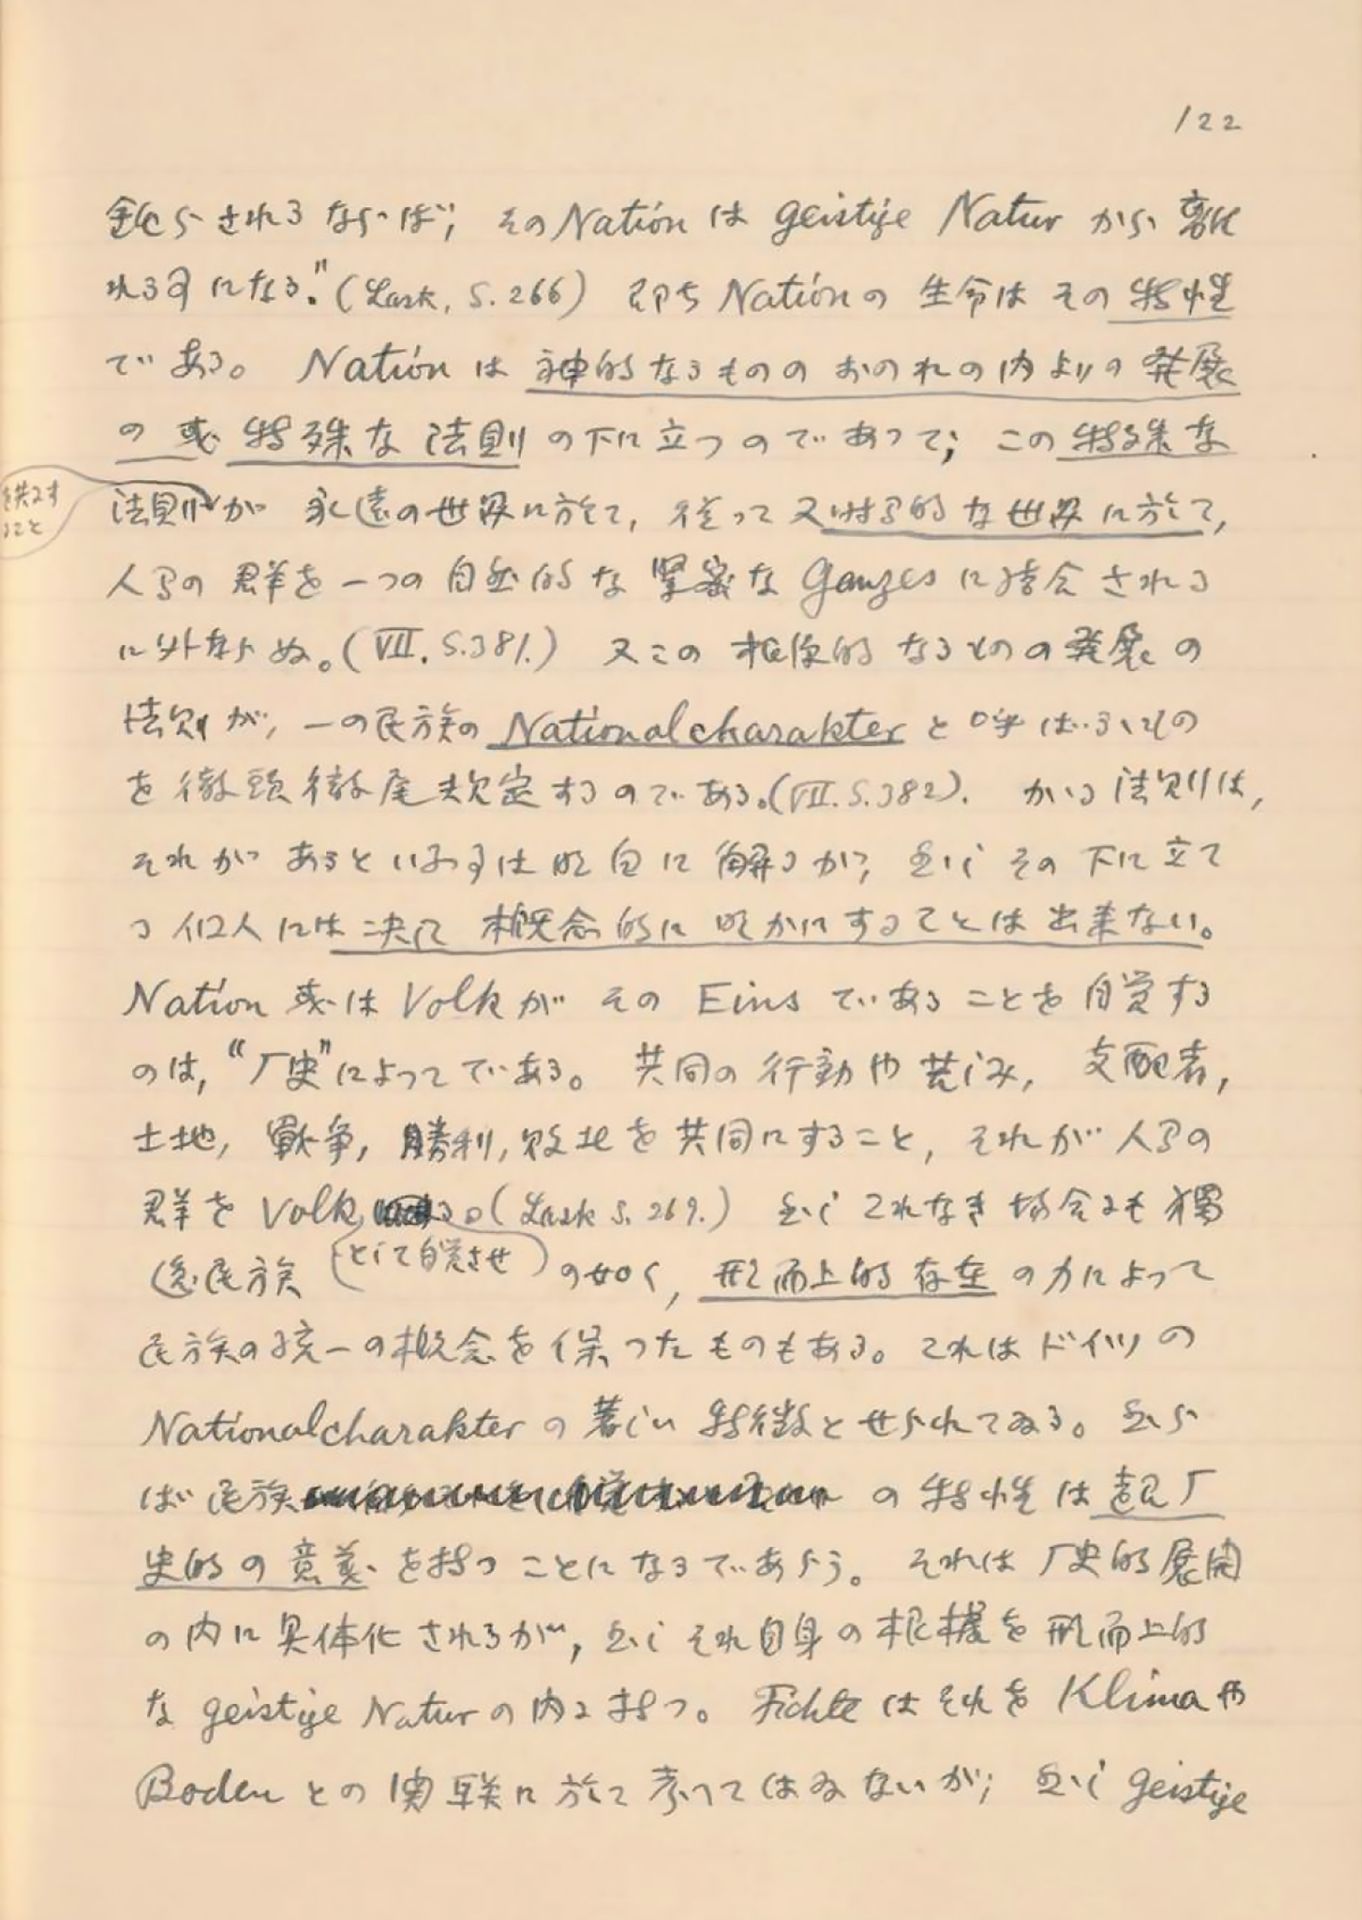 122
鈍らされるならば, その Nation は geistige Natur から離
れる事になる."(Lask, S. 266) 即ち Nation の 生命は その 特性
で ある。 Nation は 神的なるものの おのれの内よりの 発展
の 或 特殊な 法則 の下に立つのであって, この 特殊な
法則が 永遠の世界に於て, 従って 又 時間的な世界に於て,
を共にす
ること
人間の 群を 一つの 自然的な 緊密な Ganzes に結合される
に外ならぬ。(VII. S.381.) 又この 根源的 なるものの 発展の
法則が, 一の民族の Nationalcharakter と 呼ばるゝもの
を 徹頭徹尾 決定するのである。(VII. S.382). かゝる 法則は,
それが あるといふ事は 明白に 解るが, 然し その 下に 立て
る 個人には 決して 概念的に 明かにすることは 出来ない。
Nation 或は Volk が その Eins であることを 自覚する
のは, "厂史"によってである。 共同の 行動や 苦しみ, 支配者,
土地, 戰争, 勝利, 敗北を 共同にすること, それが 人間の
群を Volk る。(Lask S. 269.) 然し これなき 場合にも 獨
として自覚させ
逸民族 の如く, 形而上的 存在 の力によって
民族の統一の概念を 保ったものもある。 これは ドイツの
Nationalcharakter の 著しい 特徴とせられてゐる。 然ら
ば 民族 の 特性は 超厂
史的の 意義を持つ ことになるであらう。 それは 厂史的 展開
の内に 具体化 されるが, 然し それ自身の 根據を 形而上的
な geistige Natur の内に持つ。 Fichte は それを Klima や
Boden との 関聯に 於て 考へては ゐないが, 然し geistige